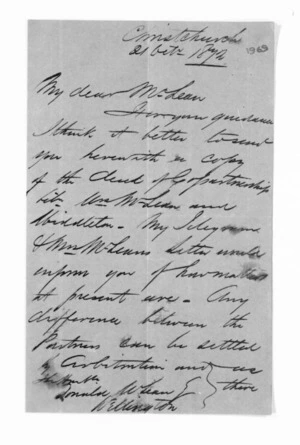 Christchurch
21 Octr 1872
1969
My dear McLean
For your guidance
I think it better to send
you herewith a copy
of the deed of Copartnership
bt. Wm McLean and
Middleton - My Telegram
& Wm McLeans letter would
inform you of how matters
at present are - Any
difference between the
Partners can be settled
by Arbitration and as
The Honble
Donald McLean there
Wellington